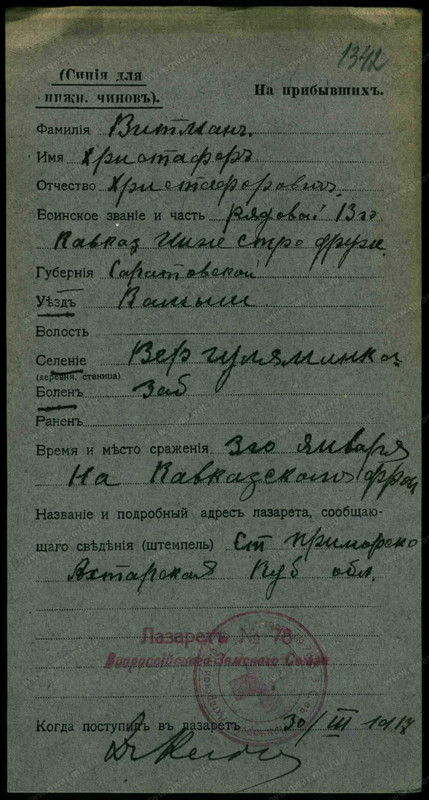 1342
(Синія для
нижн. чиновъ).
На прибывшихъ.
Фамилія Витманъ.
Имя Христафоръ
Отчество Христафоровичъ.
Воинское званіе и часть рядовой 13го
Кавказ Инже стро дружи.
Губернія Саратовской
Уѣздъ Камыши
Волость
Селеніе Вер гуляминка
(деревня, станица)
Боленъ Заб
Раненъ
Время и мѣсто сраженія 3го января
На Кавказского фрон
Названіе и подробный адресъ лазарета, сообщаю-
щаго свѣдѣнія (штемпель) Ст приморско
Ахтарская Куб обл.
Лазаретъ № 78
Всероссійскаго Земскаго Союза
Когда поступилъ въ лазаретъ 30/III 1917